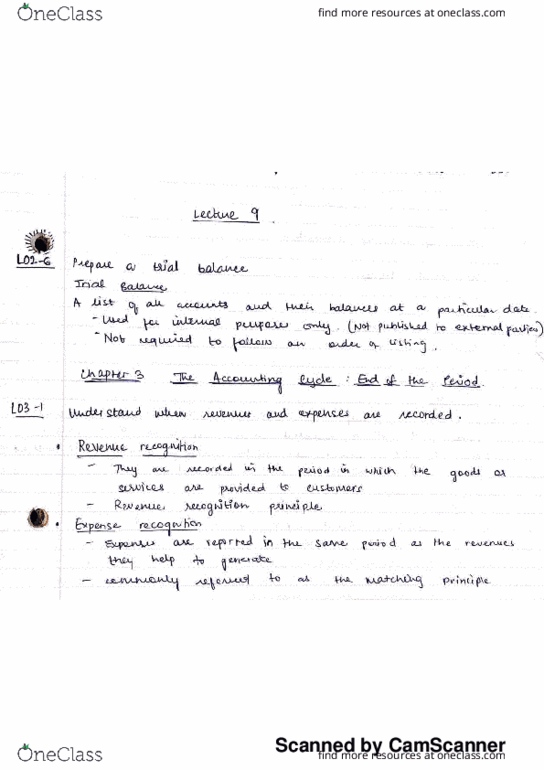 OneClass
find more resources at oneclass.com
Lecture 9
LO2-6
Prepare a trial balance
Trial Balance
A list of all accounts and their balances at a particular date.
- Used for internal purpose only. (Not published to external parties)
- Not required to follow an order of listing.
Chapter 3 The Accounting Cycle : End of the Period.
LO3-1
Understand when revenue and expenses are recorded.
• Revenue recognition
- They are recorded in the period in which the goods or
services are provided to customers
- Revenue recognition principle
• Expense recognition
- Expenses are reported in the same period as the revenues
they help to generate
- commonly referred to as the matching principle
Scanned by CamScanner
OneClass
find more resources at oneclass.com